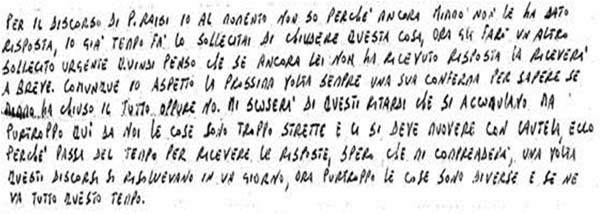 PER IL DISCORSO DI P.RAISI IO AL MOMENTO NON SO PERCHE' ANCORA MIMMO NON LE HA DATO
RISPOSTA, IO GIA' TEMPO FA' LO SOLLECITAI DI CHIUDERE QUESTA COSA, ORA GLI FARO' UN ALTRO
SOLLECITO URGENTE QUINDI PENSO CHE SE ANCORA LEI NON HA RICEVUTO RISPOSTA LA RICEVERA'
A BREVE. COMUNQUE IO ASPETTO LA PROSSIMA VOLTA SEMPRE UNA SUA CONFERMA PER SAPERE SE
HA CHIUSO IL TUTTO OPPURE NO. MI SCUSERA' DI QUESTI RITARDI CHE SI ACCUMULANO. MA
PURTROPPO QUI DA NOI LE COSE SONO TROPPO STRETTE E CI SI DEVE MUOVERE CON CAUTELA, ECCO
PERCHE' PASSA DEL TEMPO PER RICEVERE LE RISPOSTE, SPERO CHE MI COMPRENDERA', UNA VOLTA
QUESTI DISCORSI SI RISOLVEVANO IN UN GIORNO, ORA PURTROPPO LE COSE SONO DIVERSE E SE NE
VA TUTTO QUESTO TEMPO.